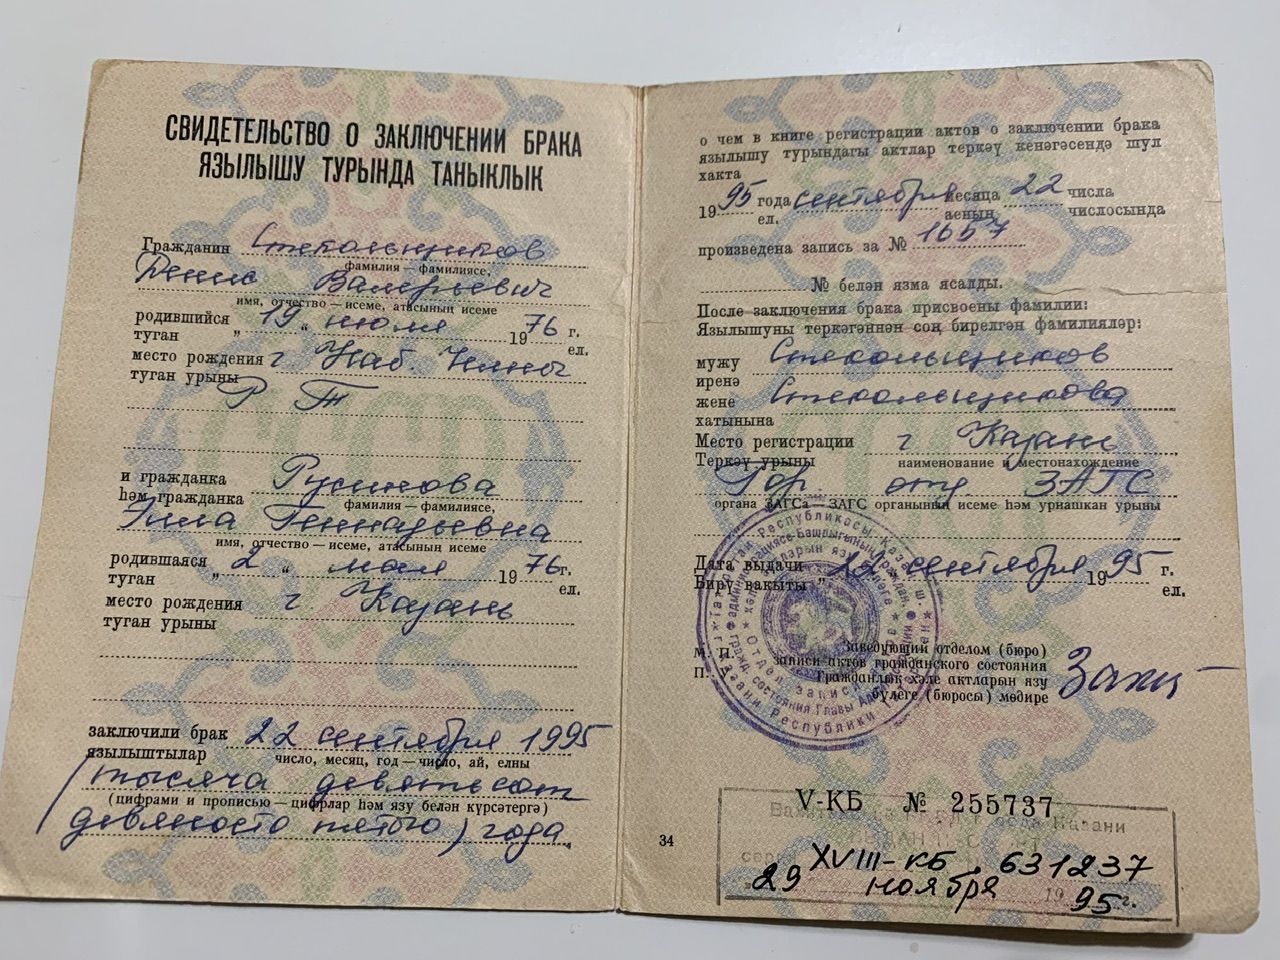 СВИДЕТЕЛЬСТВО О ЗАКЛЮЧЕНИИ БРАКА
ЯЗЫЛЫШУ ТУРЫНДА ТАНЫКЛЫК
Гражданин Стекольщиков
фамилия — фамилиясе,
Денис Валерьевич
имя, отчество — исеме, атасының исеме
родившийся „ 19 “ июля 1976 г.
туган ел.
место рождения г Наб. Челны
туган урыны
Р Т
и гражданка Русинова
һәм гражданка
фамилия — фамилиясе,
Геннадьевна
имя, отчество — исеме, атасының исеме
родившаяся „ 2 “ мая 1976 г.
туган ел.
место рождения г Казань
туган урыны
заключили брак 22 сентября 1995
язылыштылар число, месяц, год — число, ай, елны
(тысяча девятьсот
(цифрами и прописью — цифрлар һәм язу белән күрсәтергә)
девяносто пятого) года
о чем в книге регистрации актов о заключении брака
язылышу турындагы актлар теркәү кенәгәсендә шул
хакта
1995 года сентября месяца 22 числа
ел. аеның числосында
произведена запись за № 1657
№ белән язма ясалды.
После заключения брака присвоены фамилии:
Язылышуны теркәгәннән соң бирелгән фамилияләр:
мужу Стекольщиков
иренә
жене Стекольщикова
хатынына
Место регистрации г Казань
Теркәү урыны наименование и местонахождение
Гор отд. ЗАГС
органа ЗАГСа — ЗАГС органының исеме һәм урнашкан урыны
Дата выдачи „ 22 сентября 1995 г.
Бирү вакыты ел.
М. П. Заведующий отделом (бюро)
записи актов гражданского состояния
П. Гражданлык хәле актларын язу
бүлеге (бюросы) мөдире
V-КБ № 255737
34
Казани
XVIII-КБ 631237
29 ноября 1995 г.